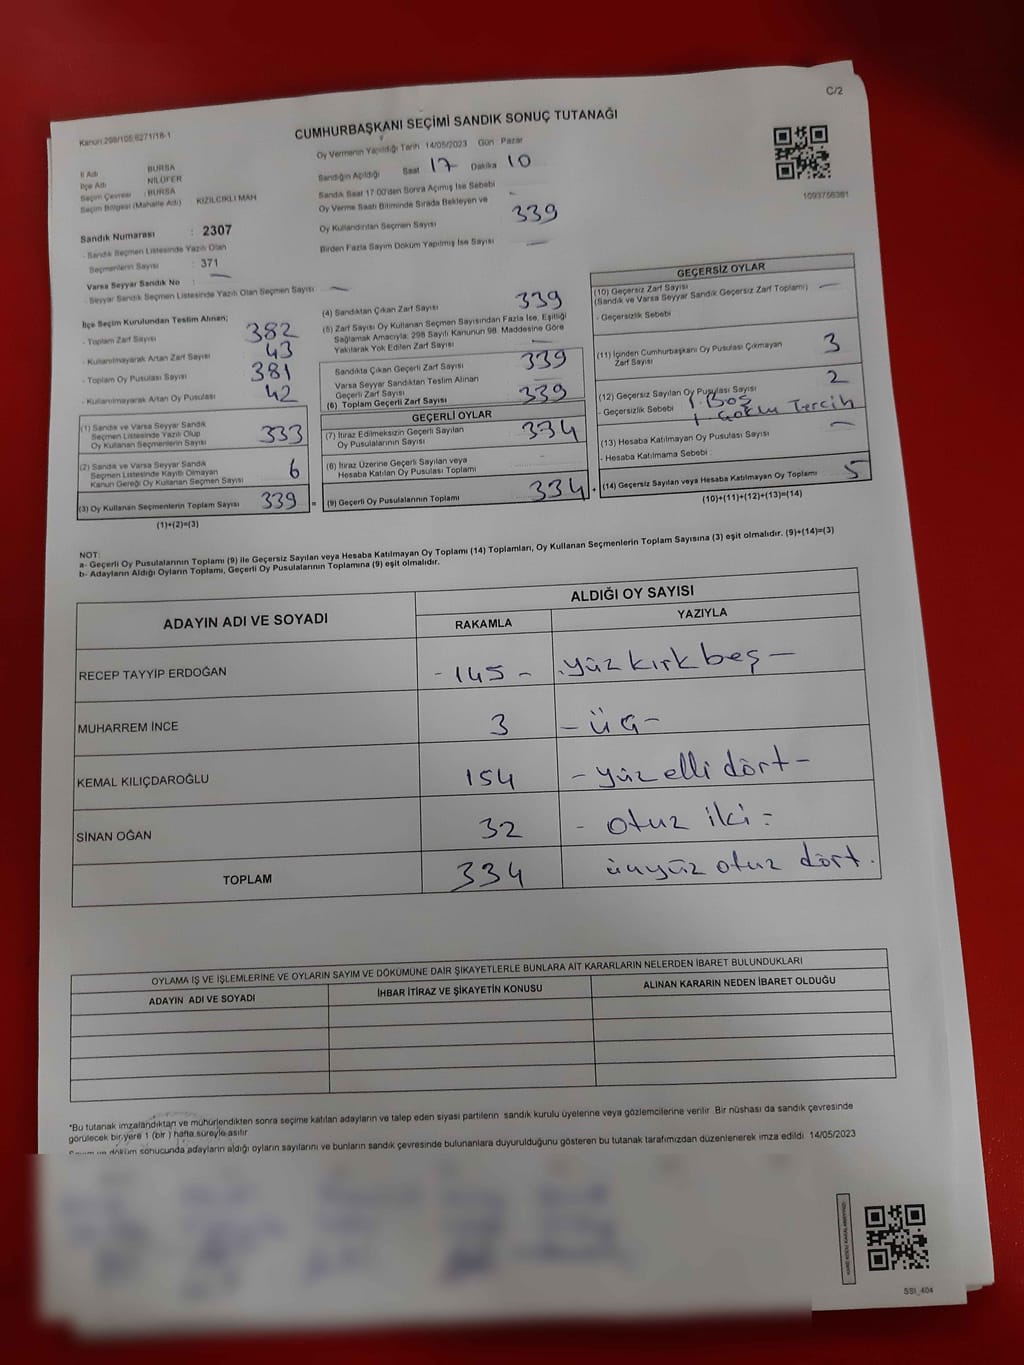 C/2
Kanun:298/105;6271/18-1
CUMHURBAŞKANI SEÇİMİ SANDIK SONUÇ TUTANAĞI
İl Adı : BURSA
İlçe Adı : NİLÜFER
Seçim Çevresi : BURSA
Seçim Bölgesi (Mahalle Adı) : KIZILCIKLI MAH
Sandık Numarası : 2307
- Sandık Seçmen Listesinde Yazılı Olan
Seçmenlerin Sayısı : 371
Varsa Seyyar Sandık No : —
- Seyyar Sandık Seçmen Listesinde Yazılı Olan Seçmen Sayısı : —
Oy Vermenin Yapıldığı Tarih 14/05/2023 Gün : Pazar
Sandığın Açıldığı Saat 17 Dakika 10
Sandık Saat 17:00'den Sonra Açılmış İse Sebebi -
Oy Verme Saati Bitiminde Sırada Bekleyen ve
Oy Kullandırılan Seçmen Sayısı 339
Birden Fazla Sayım Döküm Yapılmış İse Sayısı —
1093756381
İlçe Seçim Kurulundan Teslim Alınan;
- Toplam Zarf Sayısı 382
- Kullanılmayarak Artan Zarf Sayısı 43
- Toplam Oy Pusulası Sayısı 381
- Kullanılmayarak Artan Oy Pusulası 42
(1) Sandık ve Varsa Seyyar Sandık
Seçmen Listesinde Yazılı Olup
Oy Kullanan Seçmenlerin Sayısı 333
(2) Sandık ve Varsa Seyyar Sandık
Seçmen Listesinde Kayıtlı Olmayan
Kanun Gereği Oy Kullanan Seçmen Sayısı 6
(3) Oy Kullanan Seçmenlerin Toplam Sayısı 339 =
(1)+(2)=(3)
(4) Sandıktan Çıkan Zarf Sayısı 339
(5) Zarf Sayısı Oy Kullanan Seçmen Sayısından Fazla İse, Eşitliği
Sağlamak Amacıyla; 298 Sayılı Kanunun 98. Maddesine Göre
Yakılarak Yok Edilen Zarf Sayısı —
Sandıkta Çıkan Geçerli Zarf Sayısı 339
Varsa Seyyar Sandıktan Teslim Alınan
Geçerli Zarf Sayısı
(6) Toplam Geçerli Zarf Sayısı 339
GEÇERLİ OYLAR
(7) İtiraz Edilmeksizin Geçerli Sayılan
Oy Pusulalarının Sayısı 334
(8) İtiraz Üzerine Geçerli Sayılan veya
Hesaba Katılan Oy Pusulası Toplamı -
(9) Geçerli Oy Pusulalarının Toplamı 334 +
GEÇERSİZ OYLAR
(10) Geçersiz Zarf Sayısı
(Sandık ve Varsa Seyyar Sandık Geçersiz Zarf Toplamı) —
- Geçersizlik Sebebi :
(11) İçinden Cumhurbaşkanı Oy Pusulası Çıkmayan
Zarf Sayısı 3
(12) Geçersiz Sayılan Oy Pusulası Sayısı 2
- Geçersizlik Sebebi 1 Boş
1 Çoklu Tercih
(13) Hesaba Katılmayan Oy Pusulası Sayısı —
- Hesaba Katılmama Sebebi :
(14) Geçersiz Sayılan veya Hesaba Katılmayan Oy Toplamı 5
(10)+(11)+(12)+(13)=(14)
NOT:
a- Geçerli Oy Pusulalarının Toplamı (9) ile Geçersiz Sayılan veya Hesaba Katılmayan Oy Toplamı (14) Toplamları, Oy Kullanan Seçmenlerin Toplam Sayısına (3) eşit olmalıdır. (9)+(14)=(3)
b- Adayların Aldığı Oyların Toplamı, Geçerli Oy Pusulalarının Toplamına (9) eşit olmalıdır.
ADAYIN ADI VE SOYADI ALDIĞI OY SAYISI
RAKAMLA YAZIYLA
RECEP TAYYİP ERDOĞAN - 145 - yüz kırk beş —
MUHARREM İNCE 3 - üç -
KEMAL KILIÇDAROĞLU 154 - yüz elli dört -
SİNAN OĞAN 32 - otuz iki -
TOPLAM 334 üçyüz otuz dört.
OYLAMA İŞ VE İŞLEMLERİNE VE OYLARIN SAYIM VE DÖKÜMÜNE DAİR ŞİKAYETLERLE BUNLARA AİT KARARLARIN NELERDEN İBARET BULUNDUKLARI
ADAYIN ADI VE SOYADI İHBAR İTİRAZ VE ŞİKAYETİN KONUSU ALINAN KARARIN NEDEN İBARET OLDUĞU
*Bu tutanak imzalandıktan ve mühürlendikten sonra seçime katılan adayların ve talep eden siyasi partilerin sandık kurulu üyelerine veya gözlemcilerine verilir. Bir nüshası da sandık çevresinde
görülecek bir yere 1 (bir ) hafta süreyle asılır
Sayım ve döküm sonucunda adayların aldığı oyların sayılarını ve bunların sandık çevresinde bulunanlara duyurulduğunu gösteren bu tutanak tarafımızdan düzenlenerek imza edildi. 14/05/2023
SSI_404